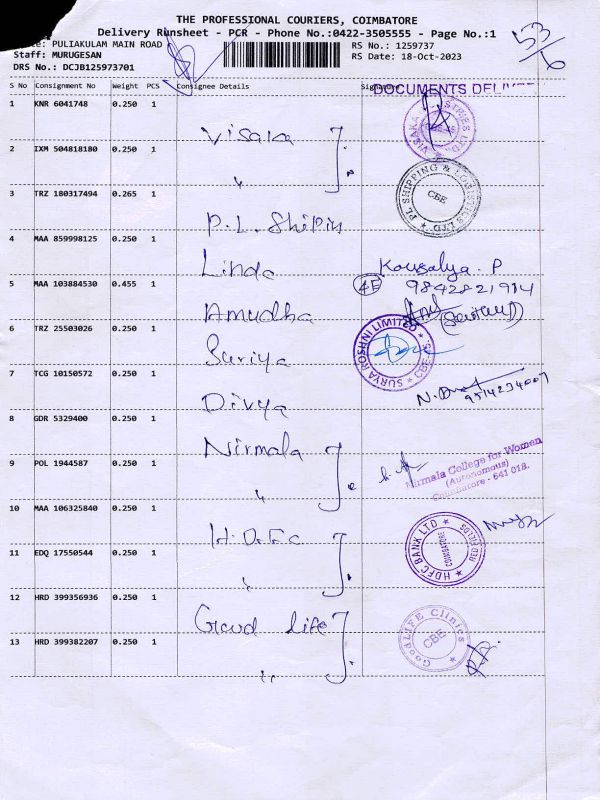 THE PROFESSIONAL COURIERS, COIMBATORE
Delivery Runsheet - PCR - Phone No.:0422-3505555 - Page No.:1
PULIAKULAM MAIN ROAD
RS No.: 1259737
Staff: MURUGESAN
RS Date: 18-Oct-2023
DRS No.: DCJB125973701
53/6
S No Consignment No Weight PCS Consignee Details
DOCUMENTS
1 KNR 6041748 0.250 1 Visaka
2 IXM 504818180 0.250 1 "
3 TRZ 180317494 0.265 1 P.L. Shipin
PL SHIPPING & LOGISTICS LTD CBE
4 MAA 859998125 0.250 1 Linda Kousalya. P
4E 9842821914
5 MAA 103884530 0.455 1 Amudha
6 TRZ 25503026 0.250 1 Suriya
SURYA ROSHNI LIMITED CBE
7 TCG 10150572 0.250 1 Divya
8 GDR 5329400 0.250 1 Nirmala
9 POL 1944587 0.250 1 "
Nirmala College for Women
(Autonomous)
Coimbatore - 641 018.
10 MAA 106325840 0.250 1 H.D.F.C
11 EDQ 17550544 0.250 1 "
HDFC BANK LTD COIMBATORE
12 HRD 399356936 0.250 1 Goud life
13 HRD 399382207 0.250 1 "
GoodLIFE Clinics CBE